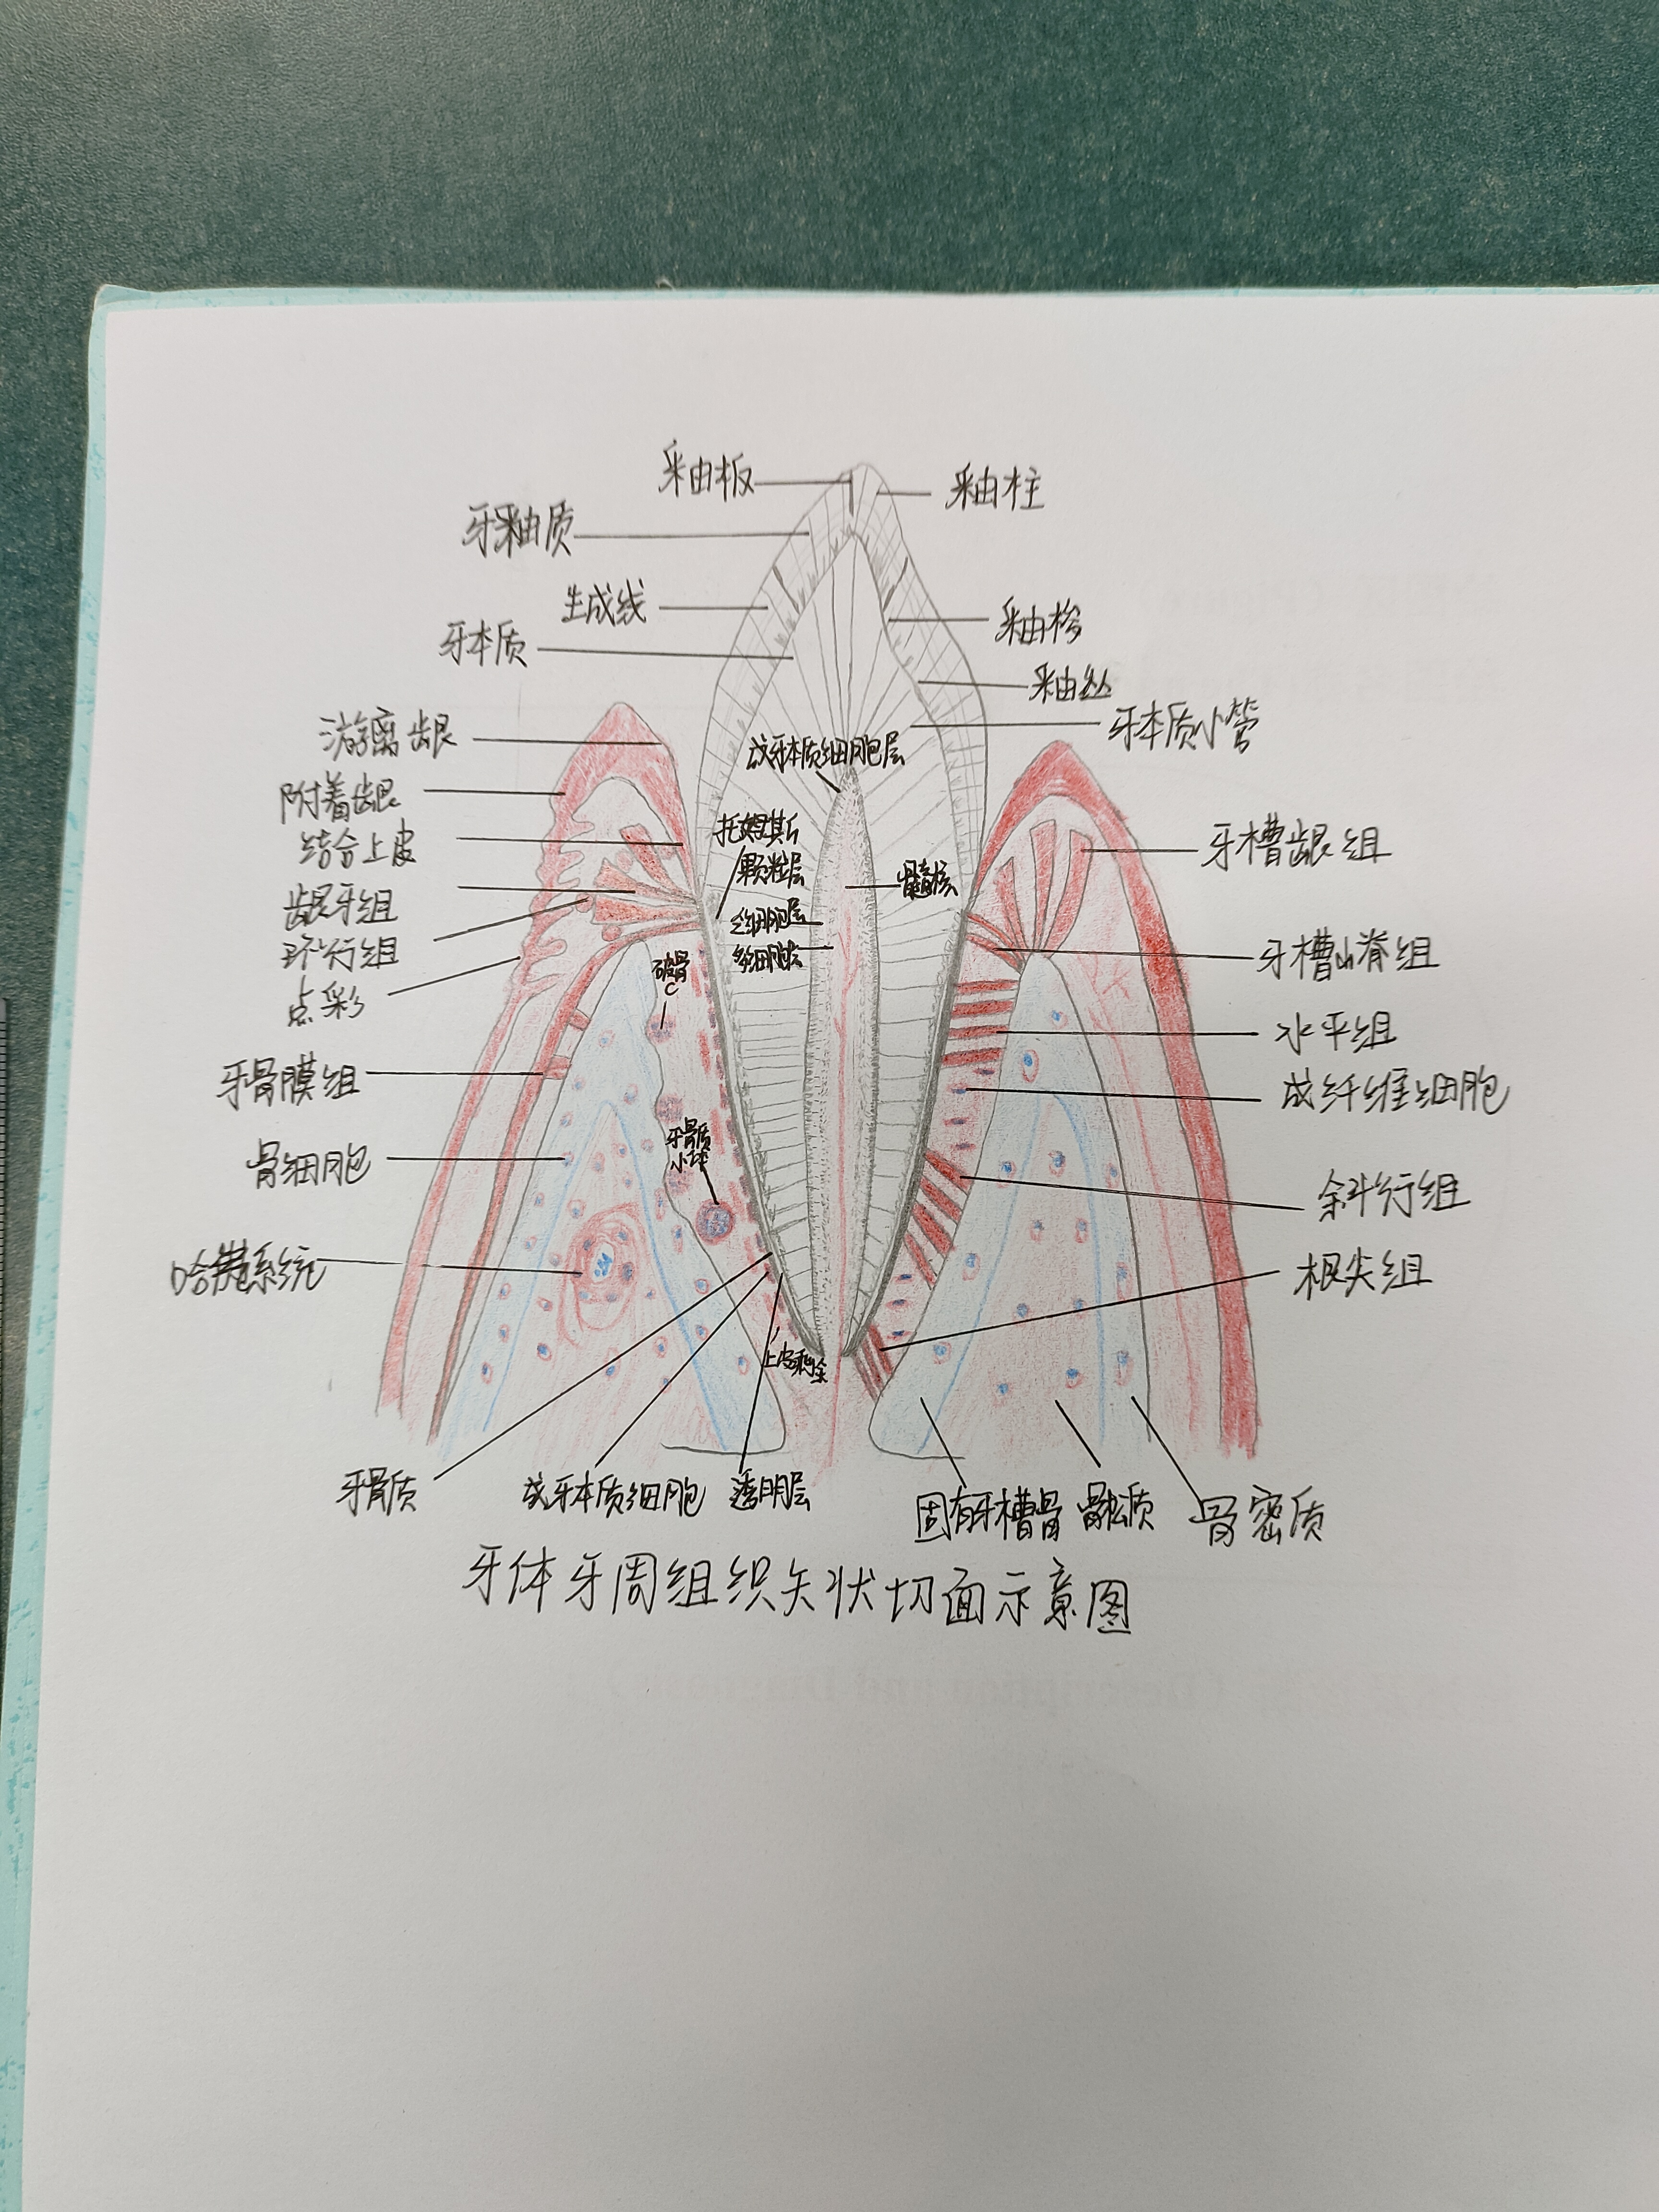 釉板
釉柱
牙釉质
生成线
釉梭
牙本质
釉丛
牙本质小管
游离龈
成牙本质细胞层
附着龈
结合上皮
托姆斯
颗粒层
牙槽龈组
髓核
龈牙组
细胞层
多细胞层
环行组
牙槽山脊组
破骨
C
点彩
水平组
牙骨膜组
成纤维细胞
牙骨质
小球
骨细胞
斜行组
哈弗系统
根尖组
上皮剩余
牙骨质
成牙本质细胞
透明层
固有牙槽骨
骨松质
骨密质
牙体牙周组织矢状切面示意图